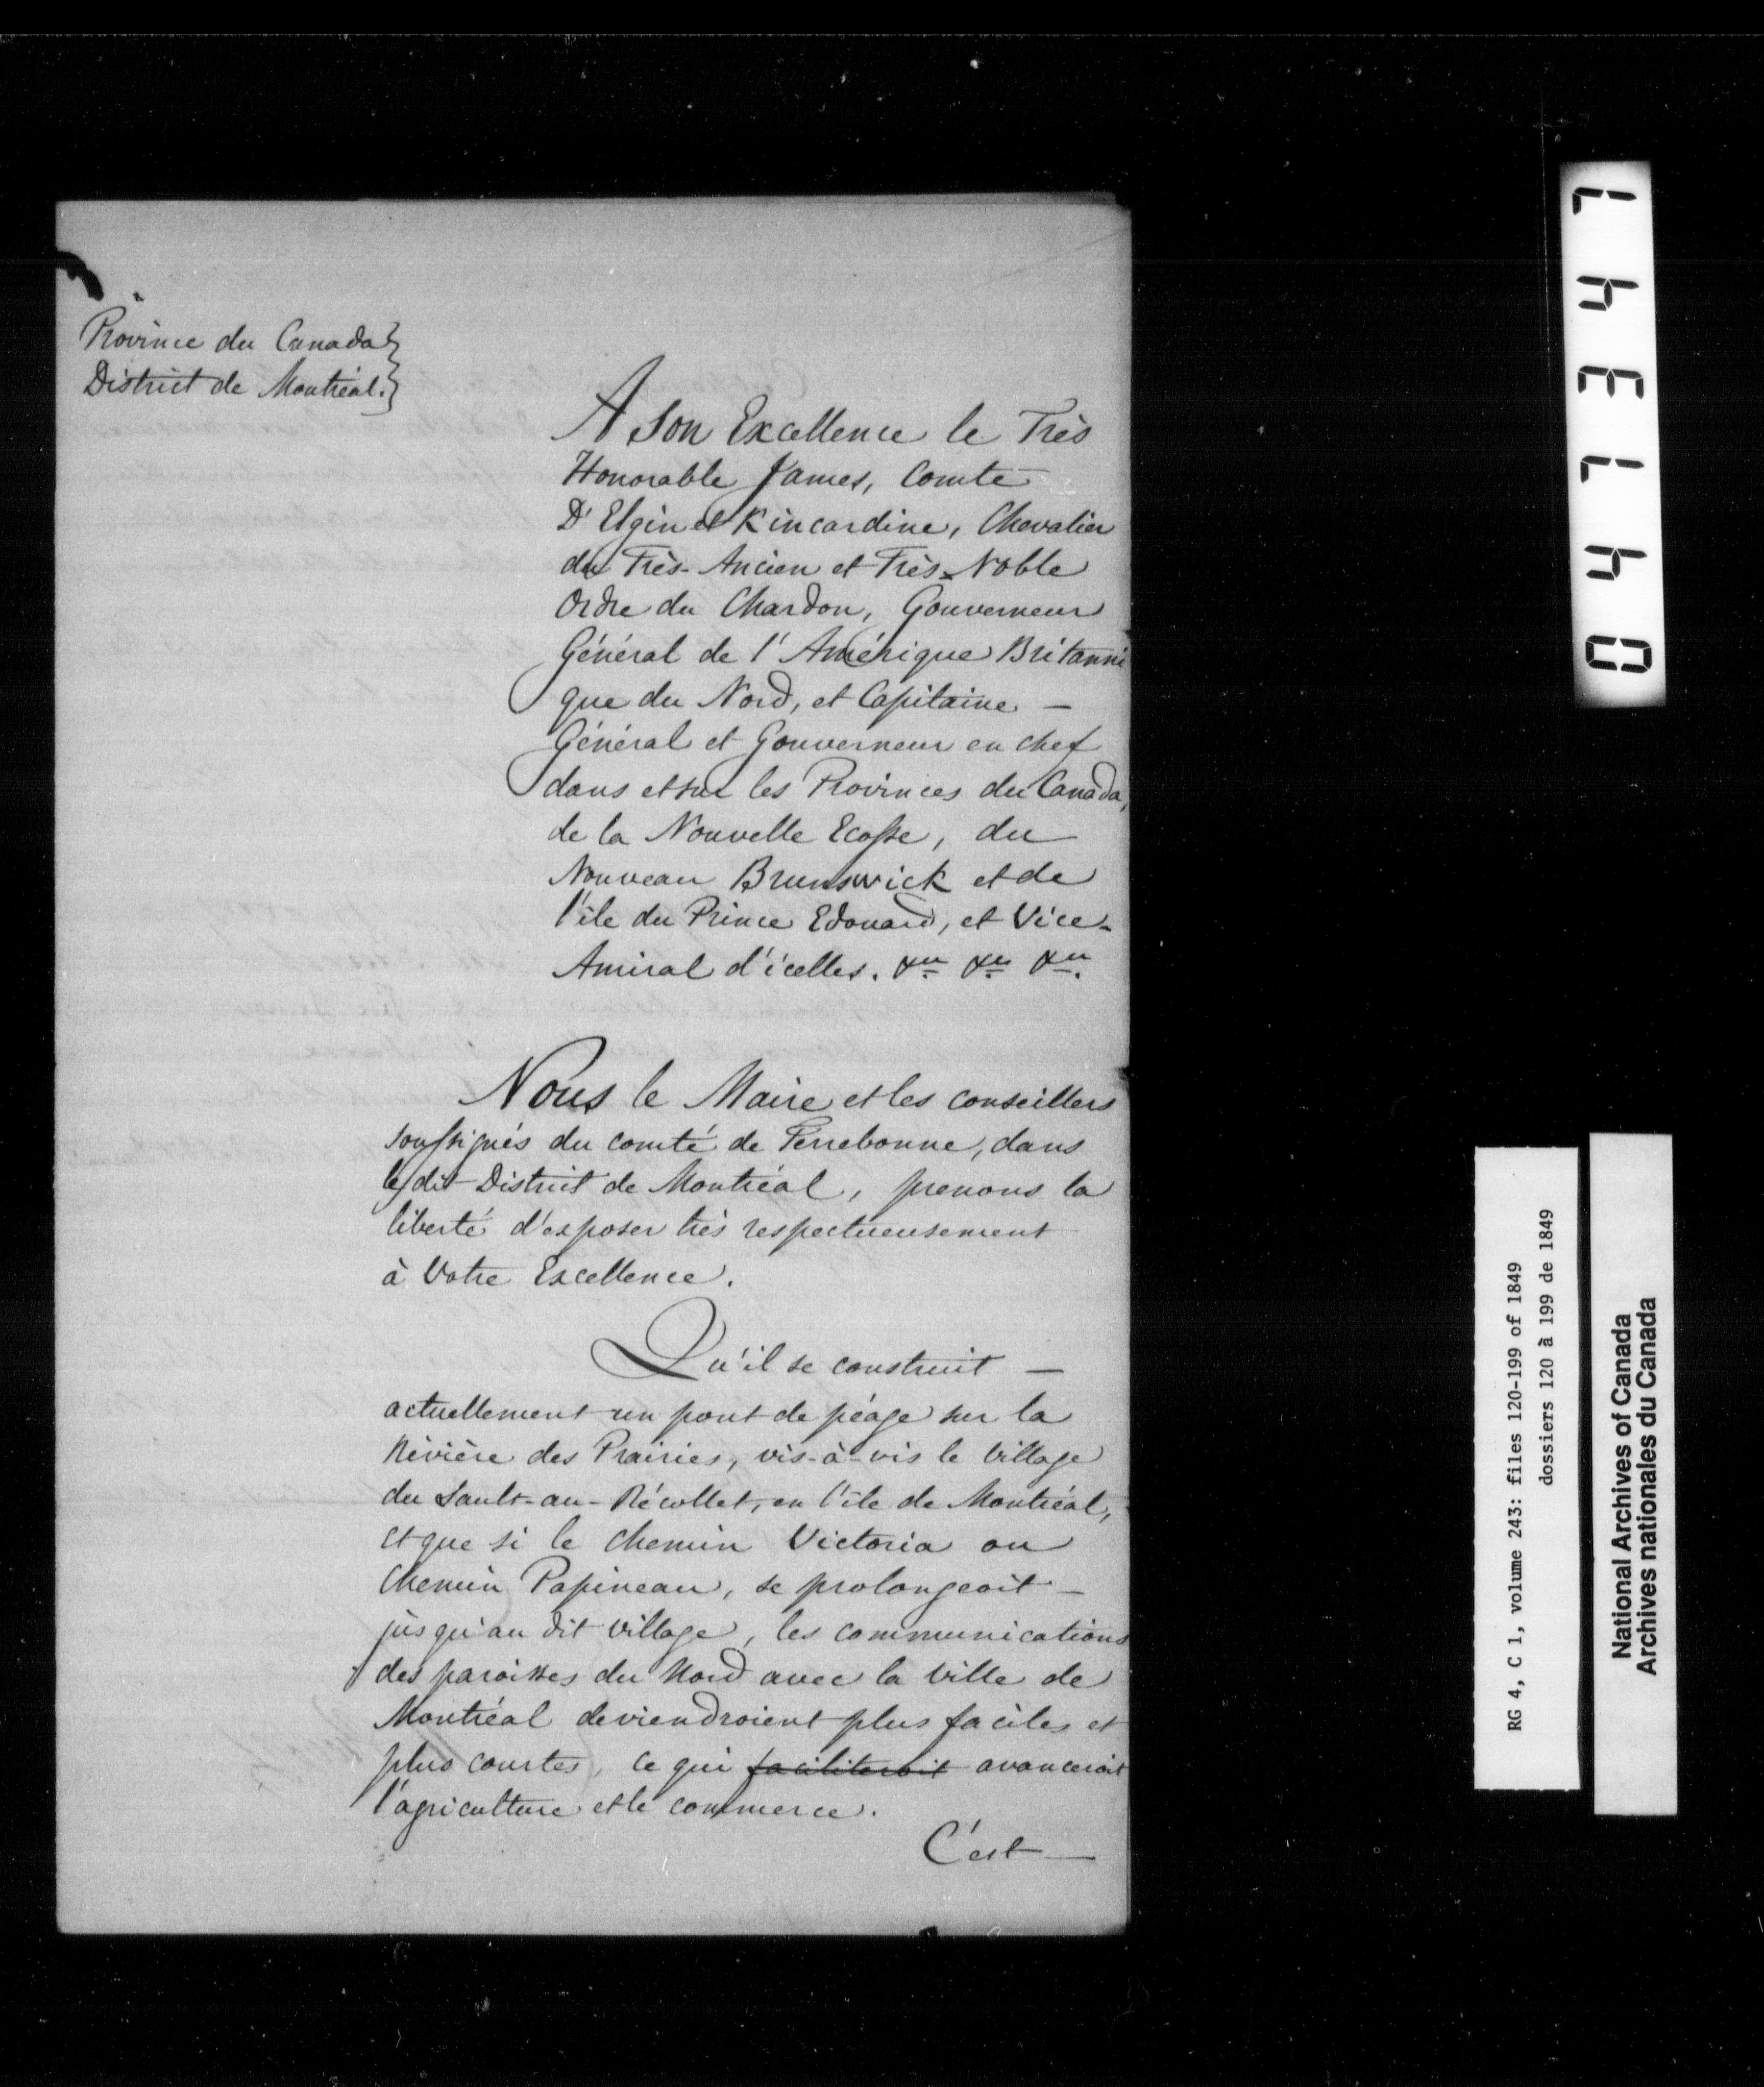 Province du Canada }
District de Montréal. }
A Son Excellence le Très
Honorable James, Comte
D'Elgin et Kincardine, Chevalier
du Très-Ancien et Très-Noble
Ordre du Chardon, Gouverneur
Général de l'Amérique Britanni
que du Nord, et Capitaine —
Général et Gouverneur en chef
dans et sur les Provinces du Canada,
de la Nouvelle Ecosse, du
Nouveau Brunswick et de
l'île du Prince Edouard, et Vice-
Amiral d'icelles.
Nous le Maire et les conseillers
soussignés du comté de Terrebonne, dans
le dit District de Montréal, prenons la
liberté d'exposer très respectueusement
à Votre Excellence.
Qu'il se construit —
actuellement un pont de péage sur la
Rivière des Prairies, vis-à-vis le Village
du Sault-au-Récollet, en l'île de Montréal,
et que si le chemin Victoria ou
Chemin Papineau, se prolongeoit —
jusqu'au dit village, les communications
des paroisses du Nord avec la ville de
Montréal deviendroient plus faciles et
plus courtes, ce qui faciliteroit avanceroit
l'agriculture et le commerce.
C'est —
04L34L
RG 4, C 1, volume 243: files 120-199 of 1849
dossiers 120 à 199 de 1849
National Archives of Canada
Archives nationales du Canada